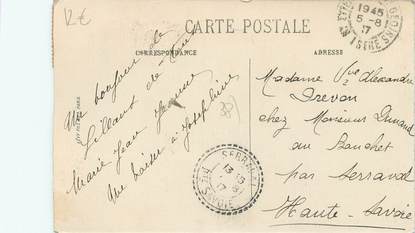 12€
CARTE POSTALE
CORRESPONDANCE
ADRESSE
Un bonjour de
Gillant de
Marie Jean Jeanne
Un baiser à Joséphine
38
Madame Vve Alexandre
Drevon
chez Monsieur Durand
au Banchet
par Serraval
Haute-Savoie
1945
5-8
17
ISÈRE
SERRAVAL
13
17
HTE SAVOIE